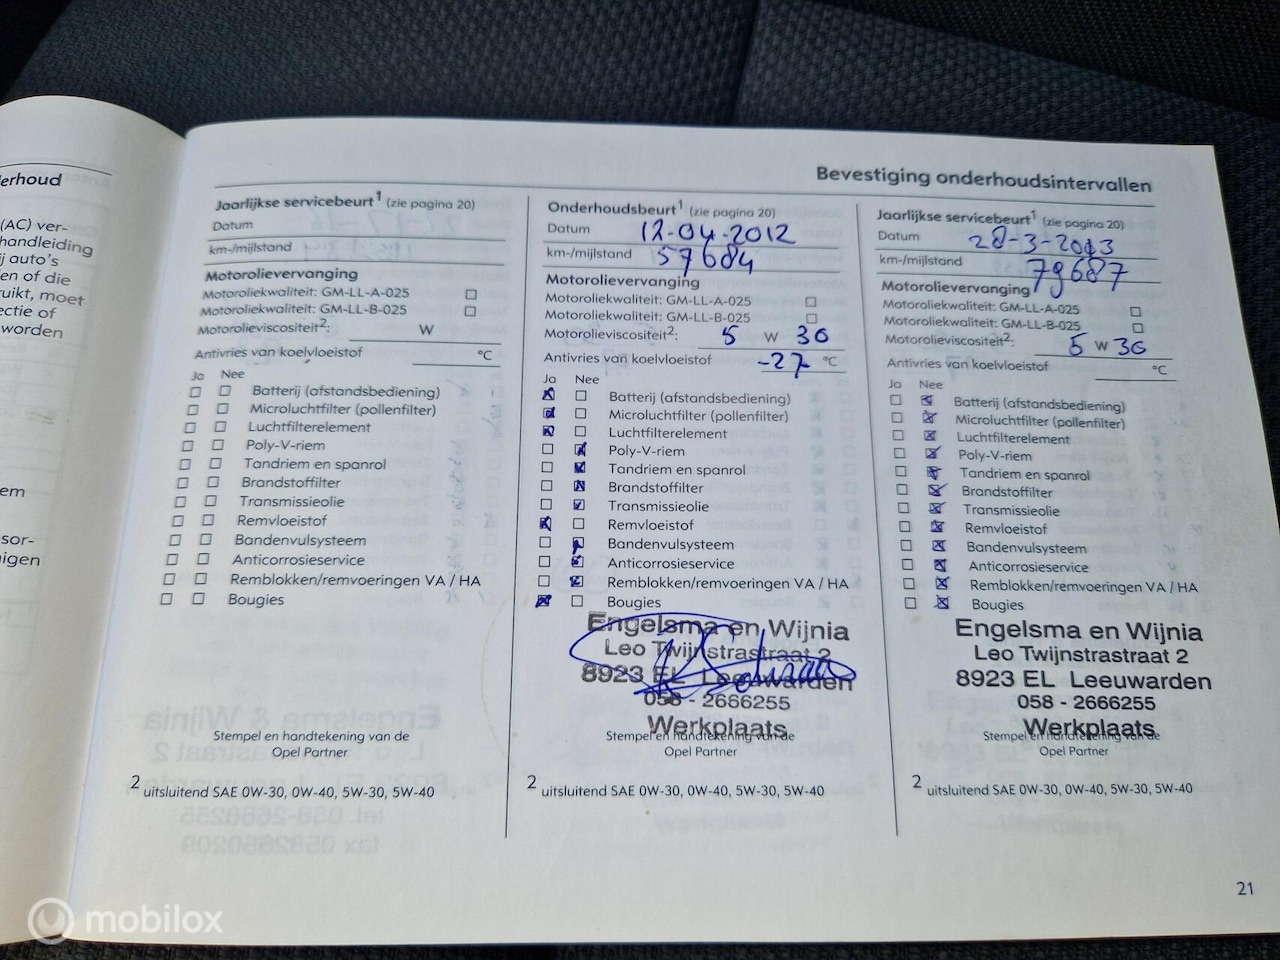 erhoud
(AC) ver-
handleiding
j auto's
en of die
ruikt, moet
ectie of
worden
em
sor-
igen
Bevestiging onderhoudsintervallen
Jaarlijkse servicebeurt¹ (zie pagina 20)
Datum
km-/mijlstand
Motorolievervanging
Motoroliekwaliteit: GM-LL-A-025
Motoroliekwaliteit: GM-LL-B-025
Motorolieviscositeit²: W
Antivries van koelvloeistof °C
Ja Nee
Batterij (afstandsbediening)
Microluchtfilter (pollenfilter)
Luchtfilterelement
Poly-V-riem
Tandriem en spanrol
Brandstoffilter
Transmissieolie
Remvloeistof
Bandenvulsysteem
Anticorrosieservice
Remblokken/remvoeringen VA / HA
Bougies
Stempel en handtekening van de
Opel Partner
2 uitsluitend SAE 0W-30, 0W-40, 5W-30, 5W-40
Onderhoudsbeurt¹ (zie pagina 20)
Datum 12-04-2012
km-/mijlstand 57684
Motorolievervanging
Motoroliekwaliteit: GM-LL-A-025
Motoroliekwaliteit: GM-LL-B-025
Motorolieviscositeit²: 5 W 30
Antivries van koelvloeistof -27 °C
Ja Nee
Batterij (afstandsbediening)
Microluchtfilter (pollenfilter)
Luchtfilterelement
Poly-V-riem
Tandriem en spanrol
Brandstoffilter
Transmissieolie
Remvloeistof
Bandenvulsysteem
Anticorrosieservice
Remblokken/remvoeringen VA / HA
Bougies
Engelsma en Wijnia
Leo Twijnstrastraat 2
8923 EL Leeuwarden
058 - 2666255
Werkplaats
Stempel en handtekening van de
Opel Partner
2 uitsluitend SAE 0W-30, 0W-40, 5W-30, 5W-40
Jaarlijkse servicebeurt¹ (zie pagina 20)
Datum 28-3-2013
km-/mijlstand 79687
Motorolievervanging
Motoroliekwaliteit: GM-LL-A-025
Motoroliekwaliteit: GM-LL-B-025
Motorolieviscositeit²: 5 W 30
Antivries van koelvloeistof °C
Ja Nee
Batterij (afstandsbediening)
Microluchtfilter (pollenfilter)
Luchtfilterelement
Poly-V-riem
Tandriem en spanrol
Brandstoffilter
Transmissieolie
Remvloeistof
Bandenvulsysteem
Anticorrosieservice
Remblokken/remvoeringen VA / HA
Bougies
Engelsma en Wijnia
Leo Twijnstrastraat 2
8923 EL Leeuwarden
058 - 2666255
Werkplaats
Stempel en handtekening van de
Opel Partner
2 uitsluitend SAE 0W-30, 0W-40, 5W-30, 5W-40
21
mobilox